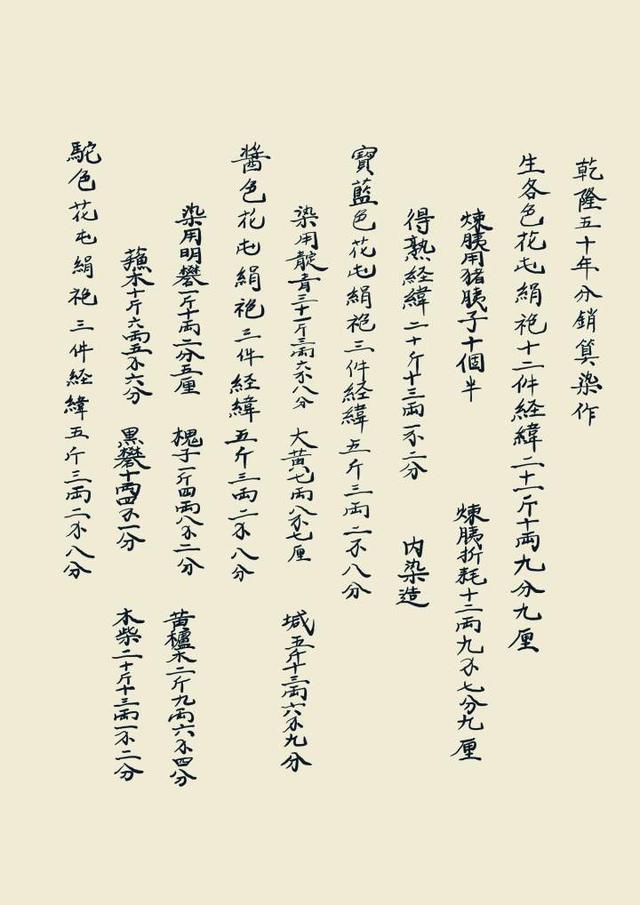 乾隆五十年分銷算染作
生各色花屯絹袍十二件経緯二十一斤十両九分九厘
煉胰用猪胰子十個半 煉胰折耗十二両九錢七分九厘
得熟経緯二十斤十三両一錢二分 内染造
寶藍色花屯絹袍三件経緯五斤三両二錢八分
染用靛青三十一斤三両六錢八分 大黄七両八錢七厘 堿五斤十三両六錢九分
醬色花屯絹袍三件経緯五斤三両二錢八分
染用明礬一斤十両二分五厘 槐子一斤四両八錢二分 黄櫨木二斤九両六錢四分
蘓木十斤六両五錢六分 黒礬十両四錢一分 木柴二十斤十三両一錢二分
駝色花屯絹袍三件経緯五斤三両二錢八分